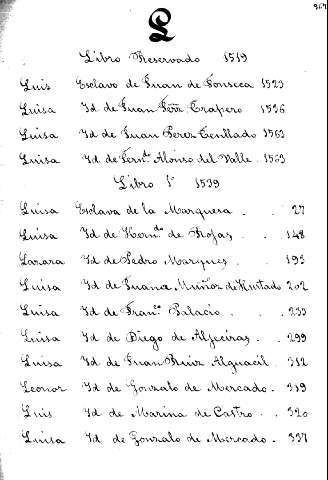 L
Libro Reservado 1519
Luis Esclavo de Juan de Fonseca 1523
Luisa Id de Juan Ferrz Trapero 1536
Luisa Id de Juan Perez Tenllado 1563
Luisa Id de Fern.do Alonso del Valle 1563
Libro 1º 1539
Luisa Esclava de la Marquesa . . 27
Luisa Id de Hern.do de Rojas . . 148
Lazara Id de Pedro Marques . . 193
Luisa Id de Juana Muñoz de Hurtado 202
Luisa Id de Fran.co Palacio . . . 233
Luisa Id de Diego de Aljeciras . 299
Luisa Id de Juan Ruiz Alguacil . 312
Leonor Id de Gonzalo de Mercado . 319
Luis Id de Marina de Castro . . 320
Luisa Id de Gonzalo de Mercado . 337